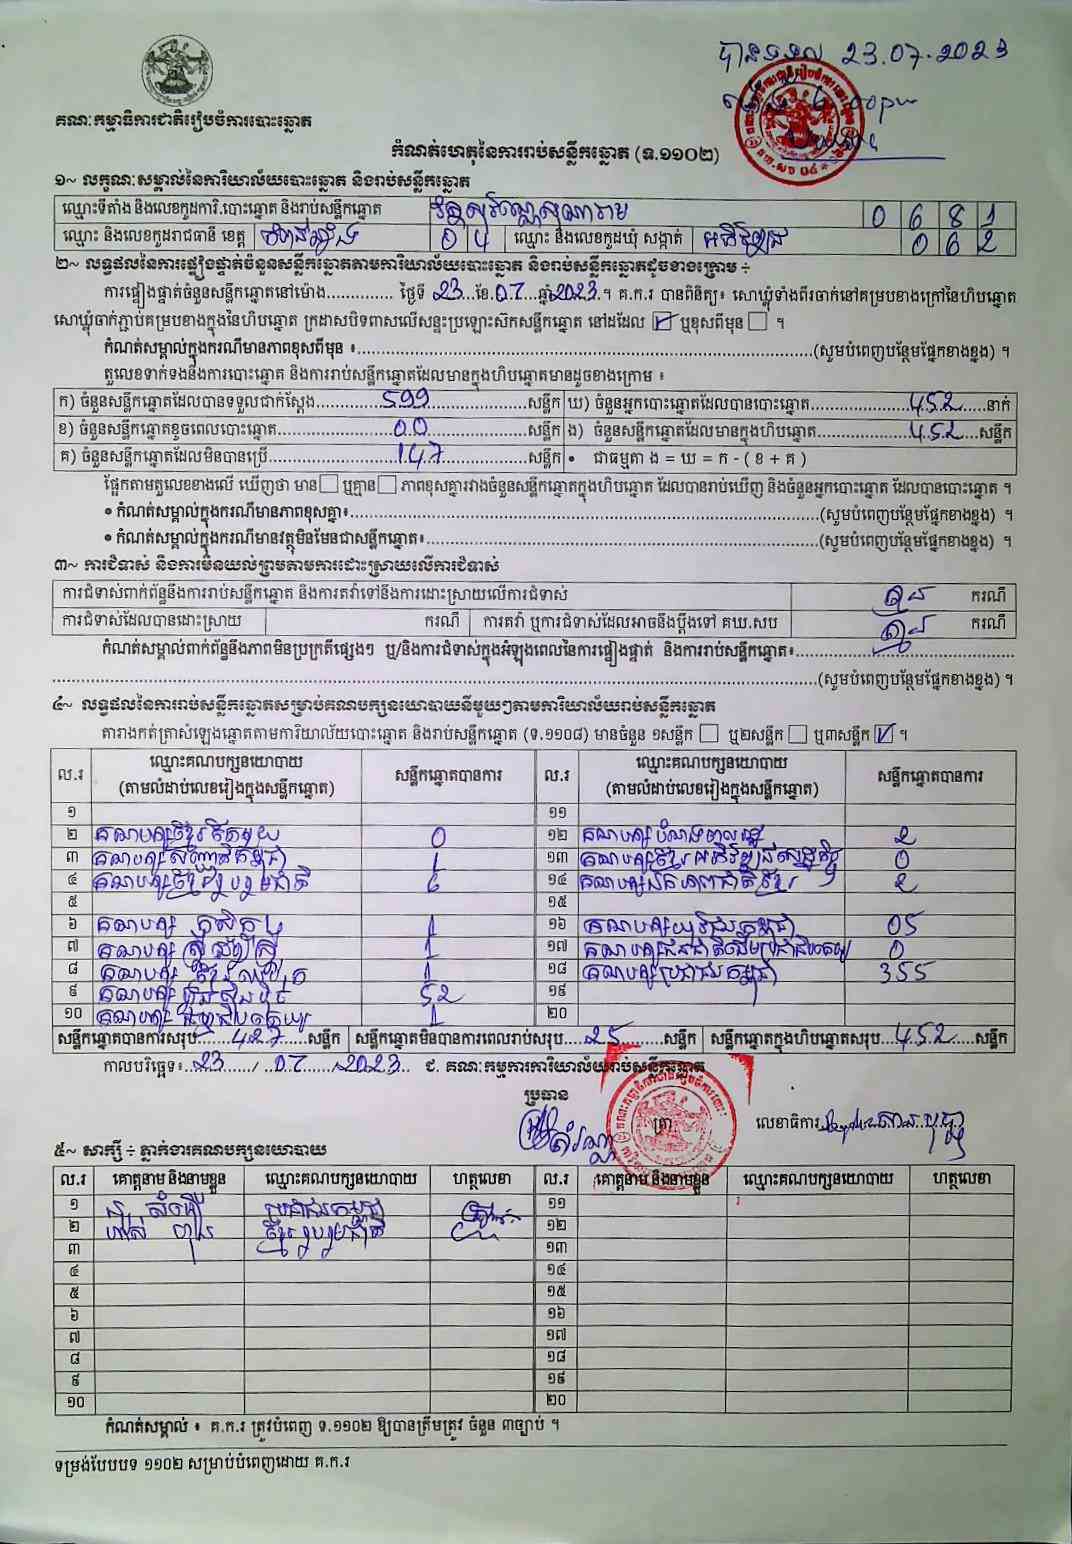 បានទទួល 23.07.2023
គណៈកម្មាធិការជាតិរៀបចំការបោះឆ្នោត
កំណត់ហេតុនៃការរាប់សន្លឹកឆ្នោត (ទ.១១០២)
១~ លក្ខណៈសម្គាល់នៃការិយាល័យបោះឆ្នោត និងរាប់សន្លឹកឆ្នោត
ឈ្មោះទីតាំង និងលេខកូដការិ.បោះឆ្នោត និងរាប់សន្លឹកឆ្នោត 0 6 8 1
ឈ្មោះ និងលេខកូដរាជធានី ខេត្ត កំពង់ឆ្នាំង 0 4 ឈ្មោះ និងលេខកូដឃុំ សង្កាត់ 0 6 2
២~ លទ្ធផលនៃការផ្ទៀងផ្ទាត់ចំនួនសន្លឹកឆ្នោតតាមការិយាល័យបោះឆ្នោត និងរាប់សន្លឹកឆ្នោតដូចខាងក្រោម ÷
ការផ្ទៀងផ្ទាត់ចំនួនសន្លឹកឆ្នោតនៅម៉ោង.............. ថ្ងៃទី 23 ខែ 07 ឆ្នាំ 2023 ។ គ.ក.រ បានពិនិត្យ៖ សោឃ្លុំទាំងពីរចាក់នៅគម្របខាងក្រៅនៃហិបឆ្នោត
សោឃ្លុំចាក់ភ្ជាប់គម្របខាងក្នុងនៃហិបឆ្នោត ក្រដាសបិទពាសលើសន្ទះប្រឡោះស៊កសន្លឹកឆ្នោត នៅដដែល ☑ ឬខុសពីមុន ☐ ។
កំណត់សម្គាល់ក្នុងករណីមានភាពខុសពីមុន ៖..............(សូមបំពេញបន្ថែមផ្នែកខាងខ្នង) ។
តួលេខទាក់ទងនឹងការបោះឆ្នោត និងការរាប់សន្លឹកឆ្នោតដែលមានក្នុងហិបឆ្នោតមានដូចខាងក្រោម ៖
ក) ចំនួនសន្លឹកឆ្នោតដែលបានទទួលជាក់ស្តែង 599 សន្លឹក ឃ) ចំនួនអ្នកបោះឆ្នោតដែលបានបោះឆ្នោត 452 នាក់
ខ) ចំនួនសន្លឹកឆ្នោតខូចពេលបោះឆ្នោត 00 សន្លឹក ង) ចំនួនសន្លឹកឆ្នោតដែលមានក្នុងហិបឆ្នោត 452 សន្លឹក
គ) ចំនួនសន្លឹកឆ្នោតដែលមិនបានប្រើ 147 សន្លឹក • ជាធម្មតា ង = ឃ = ក - ( ខ + គ )
ផ្អែកតាមតួលេខខាងលើ ឃើញថា មាន ☐ ឬគ្មាន ☐ ភាពខុសគ្នារវាងចំនួនសន្លឹកឆ្នោតក្នុងហិបឆ្នោត ដែលបានរាប់ឃើញ និងចំនួនអ្នកបោះឆ្នោត ដែលបានបោះឆ្នោត ។
• កំណត់សម្គាល់ក្នុងករណីមានភាពខុសគ្នា៖..............(សូមបំពេញបន្ថែមផ្នែកខាងខ្នង) ។
• កំណត់សម្គាល់ក្នុងករណីមានវត្ថុមិនមែនជាសន្លឹកឆ្នោត៖..............(សូមបំពេញបន្ថែមផ្នែកខាងខ្នង) ។
៣~ ការជំទាស់ និងការមិនយល់ព្រមតាមការដោះស្រាយលើការជំទាស់
ការជំទាស់ពាក់ព័ន្ធនឹងការរាប់សន្លឹកឆ្នោត និងការតវ៉ាទៅនឹងការដោះស្រាយលើការជំទាស់ គ្មាន ករណី
ការជំទាស់ដែលបានដោះស្រាយ ករណី ការតវ៉ា ឬការជំទាស់ដែលអាចនឹងប្តឹងទៅ គឃ.សប គ្មាន ករណី
កំណត់សម្គាល់ពាក់ព័ន្ធនឹងភាពមិនប្រក្រតីផ្សេងៗ ឬ/និងការជំទាស់ក្នុងអំឡុងពេលនៃការផ្ទៀងផ្ទាត់ និងការរាប់សន្លឹកឆ្នោត៖..............
..............(សូមបំពេញបន្ថែមផ្នែកខាងខ្នង) ។
៤~ លទ្ធផលនៃការរាប់សន្លឹកឆ្នោតសម្រាប់គណបក្សនយោបាយនីមួយៗតាមការិយាល័យរាប់សន្លឹកឆ្នោត
តារាងកត់ត្រាសំឡេងឆ្នោតតាមការិយាល័យបោះឆ្នោត និងរាប់សន្លឹកឆ្នោត (ទ.១១០៨) មានចំនួន ១សន្លឹក ☐ ឬ២សន្លឹក ☐ ឬ៣សន្លឹក ☑ ។
ល.រ ឈ្មោះគណបក្សនយោបាយ (តាមលំដាប់លេខរៀងក្នុងសន្លឹកឆ្នោត) សន្លឹកឆ្នោតបានការ ល.រ ឈ្មោះគណបក្សនយោបាយ (តាមលំដាប់លេខរៀងក្នុងសន្លឹកឆ្នោត) សន្លឹកឆ្នោតបានការ
១ ១១
២ គណបក្សខ្មែរតែមួយ 0 ១២ គណបក្ស 2
៣ គណបក្ស 1 ១៣ គណបក្សខ្មែរអភិវឌ្ឍន៍សេដ្ឋកិច្ច 0
៤ គណបក្ស 6 ១៤ គណបក្សឯកភាពជាតិខ្មែរ 2
៥ ១៥
៦ គណបក្ស 1 ១៦ គណបក្សយុវជនកម្ពុជា 05
៧ គណបក្ស 1 ១៧ គណបក្សជនជាតិដើមប្រជាធិបតេយ្យ 0
៨ គណបក្ស 1 ១៨ គណបក្សប្រជាជនកម្ពុជា 355
៩ គណបក្សហ្វ៊ុនស៊ិនប៉ិច 52 ១៩
១០ គណបក្ស 1 ២០
សន្លឹកឆ្នោតបានការសរុប 427 សន្លឹក សន្លឹកឆ្នោតមិនបានការពេលរាប់សរុប 25 សន្លឹក សន្លឹកឆ្នោតក្នុងហិបឆ្នោតសរុប 452 សន្លឹក
កាលបរិច្ឆេទ៖ 23 / 07 / 2023 ជ. គណៈកម្មការការិយាល័យរាប់សន្លឹកឆ្នោត
ប្រធាន ត្រា លេខាធិការ
៥~ សាក្សី ÷ ភ្នាក់ងារគណបក្សនយោបាយ
ល.រ គោត្តនាម និងនាមខ្លួន ឈ្មោះគណបក្សនយោបាយ ហត្ថលេខា ល.រ គោត្តនាម និងនាមខ្លួន ឈ្មោះគណបក្សនយោបាយ ហត្ថលេខា
១ ប្រជាជនកម្ពុជា ១១
២ ១២
៣ ១៣
៤ ១៤
៥ ១៥
៦ ១៦
៧ ១៧
៨ ១៨
៩ ១៩
១០ ២០
កំណត់សម្គាល់ ៖ គ.ក.រ ត្រូវបំពេញ ទ.១១០២ ឱ្យបានត្រឹមត្រូវ ចំនួន ៣ច្បាប់ ។
ទម្រង់បែបបទ ១១០២ សម្រាប់បំពេញដោយ គ.ក.រ